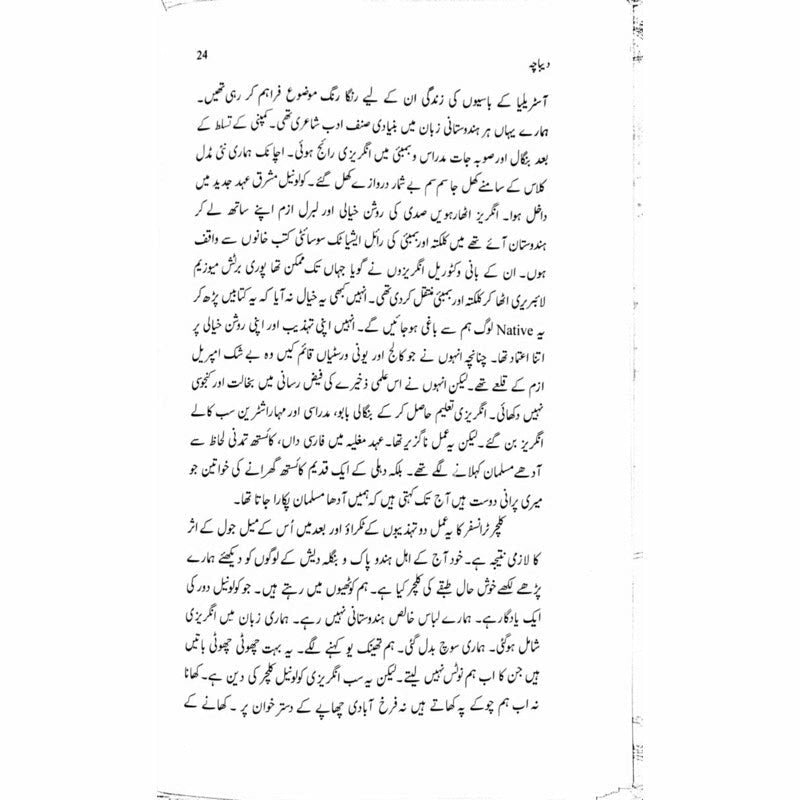 دیباچہ 24
آسٹریلیا کے باسیوں کی زندگی ان کے لیے رنگا رنگ موضوع فراہم کر رہی تھیں۔
ہمارے یہاں ہر ہندوستانی زبان میں بنیادی صنف ادب شاعری تھی۔ کمپنی کے تسلط کے
بعد بنگال اور صوبہ جات مدراس و بمبئی میں انگریزی رائج ہوئی۔ اچانک ہماری نئی مڈل
کلاس کے سامنے کھل جا سم سم بے شمار دروازے کھل گئے۔ کولونیل مشرق عہد جدید میں
داخل ہوا۔ انگریز اٹھارہویں صدی کی روشن خیالی اور لبرل ازم اپنے ساتھ لے کر
ہندوستان آئے تھے میں کلکتہ اور بمبئی کی رائل ایشیاٹک سوسائٹی کتب خانوں سے واقف
ہوں۔ ان کے بانی وکٹوریل انگریزوں نے گویا جہاں تک ممکن تھا پوری برٹش میوزیم
لائبریری اٹھا کر کلکتہ اور بمبئی منتقل کر دی تھی۔ انہیں کبھی یہ خیال نہ آیا کہ یہ کتابیں پڑھ کر
یہ Native لوگ ہم سے باغی ہو جائیں گے۔ انہیں اپنی تہذیب اور اپنی روشن خیالی پر
اتنا اعتماد تھا۔ چنانچہ انہوں نے جو کالج اور یونی ورسٹیاں قائم کیں وہ بے شک امپریل
ازم کے قلعے تھے۔ لیکن انہوں نے اس علمی ذخیرے کی فیض رسانی میں بخالت اور کنجوسی
نہیں دکھائی۔ انگریزی تعلیم حاصل کر کے بنگالی بابو، مدراسی اور مہاراشٹرین سب کالے
انگریز بن گئے۔ لیکن یہ عمل ناگزیر تھا۔ عہد مغلیہ میں فارسی داں، کائستھ تمدنی لحاظ سے
آدھے مسلمان کہلانے لگے تھے۔ بلکہ دہلی کے ایک قدیم کائستھ گھرانے کی خواتین جو
میری پرانی دوست ہیں آج تک کہتی ہیں کہ ہمیں آدھا مسلمان پکارا جاتا تھا۔
کلچر ٹرانسفر کا یہ عمل دو تہذیبوں کے ٹکراؤ اور بعد میں اُس کے میل جول کے اثر
کا لازمی نتیجہ ہے۔ خود آج کے اہل ہند و پاک و بنگلہ دیش کے لوگوں کو دیکھئے ہمارے
پڑھے لکھے خوش حال طبقے کی کلچر کیا ہے۔ ہم کوٹھیوں میں رہتے ہیں۔ جو کولونیل دور کی
ایک یادگار ہے۔ ہمارے لباس خالص ہندوستانی نہیں رہے۔ ہماری زبان میں انگریزی
شامل ہوگئی۔ ہماری سوچ بدل گئی۔ ہم تھینک یو کہنے لگے۔ یہ بہت چھوٹی چھوٹی باتیں
ہیں جن کا اب ہم نوٹس نہیں لیتے۔ لیکن یہ سب انگریزی کولونیل کلچر کی دین ہے۔ کھانا
نہ اب ہم چوکے پہ کھاتے ہیں نہ فرخ آبادی چھاپے کے دستر خوان پر ۔ کھانے کے